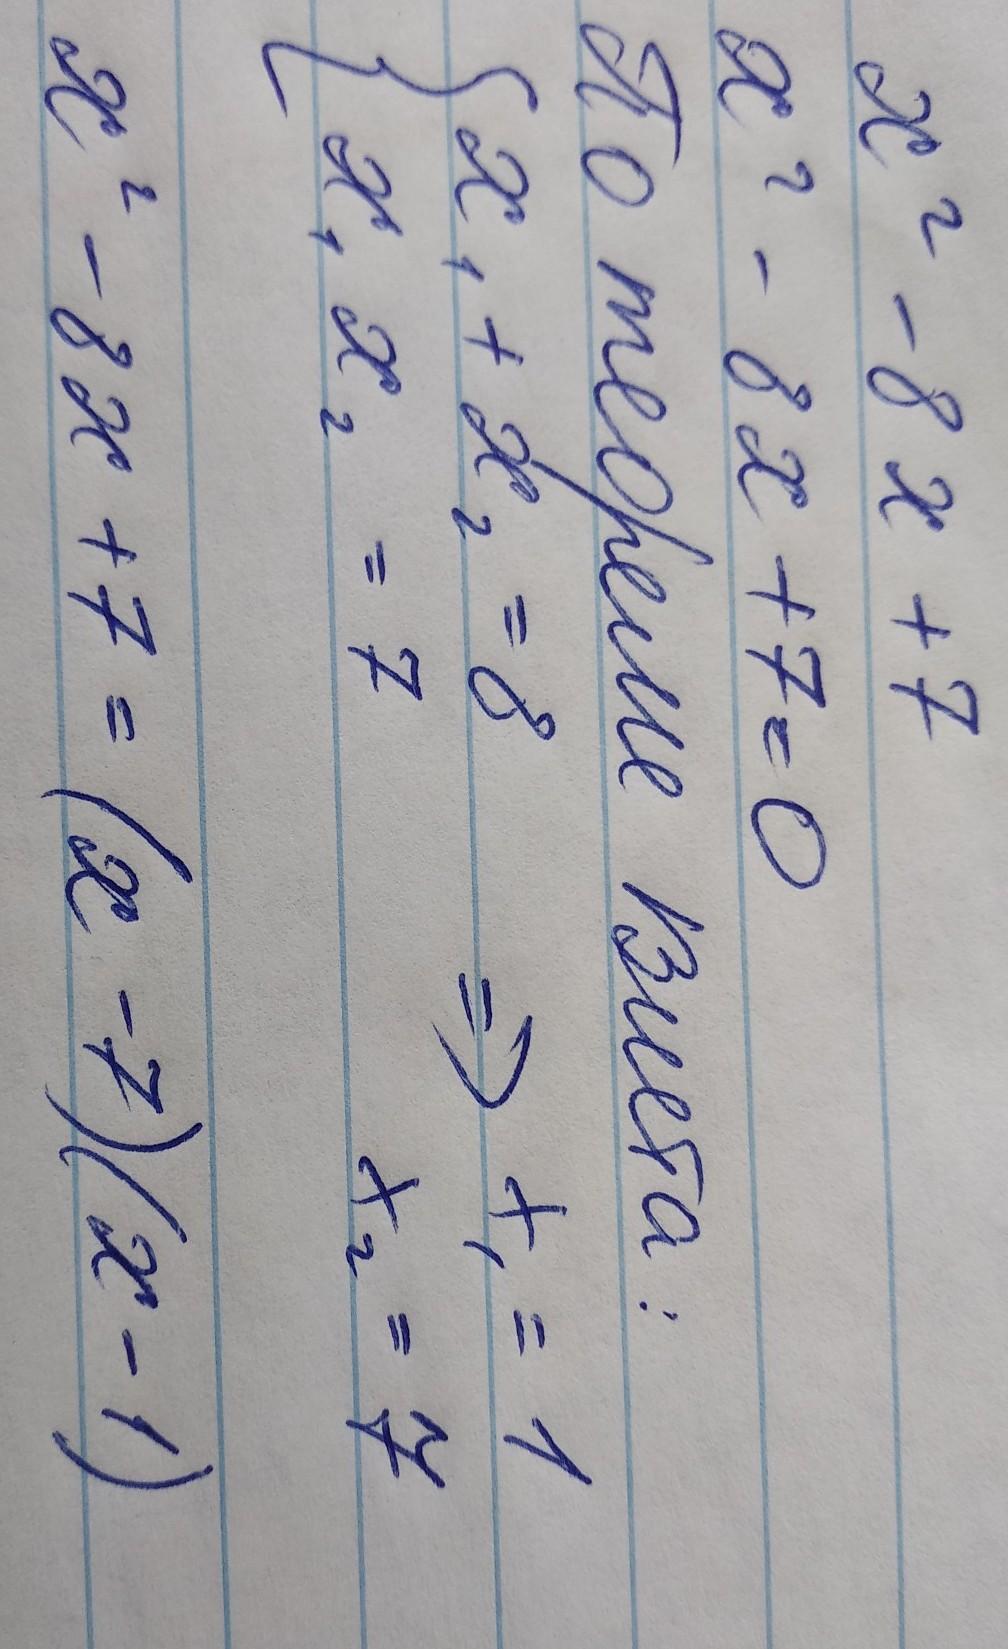 x² - 8x + 7
x² - 8x + 7 = 0
По теореме Виета:
{ x₁ + x₂ = 8 ⇒ x₁ = 1
x₁ x₂ = 7 x₂ = 7
x² - 8x + 7 = (x - 7)(x - 1)